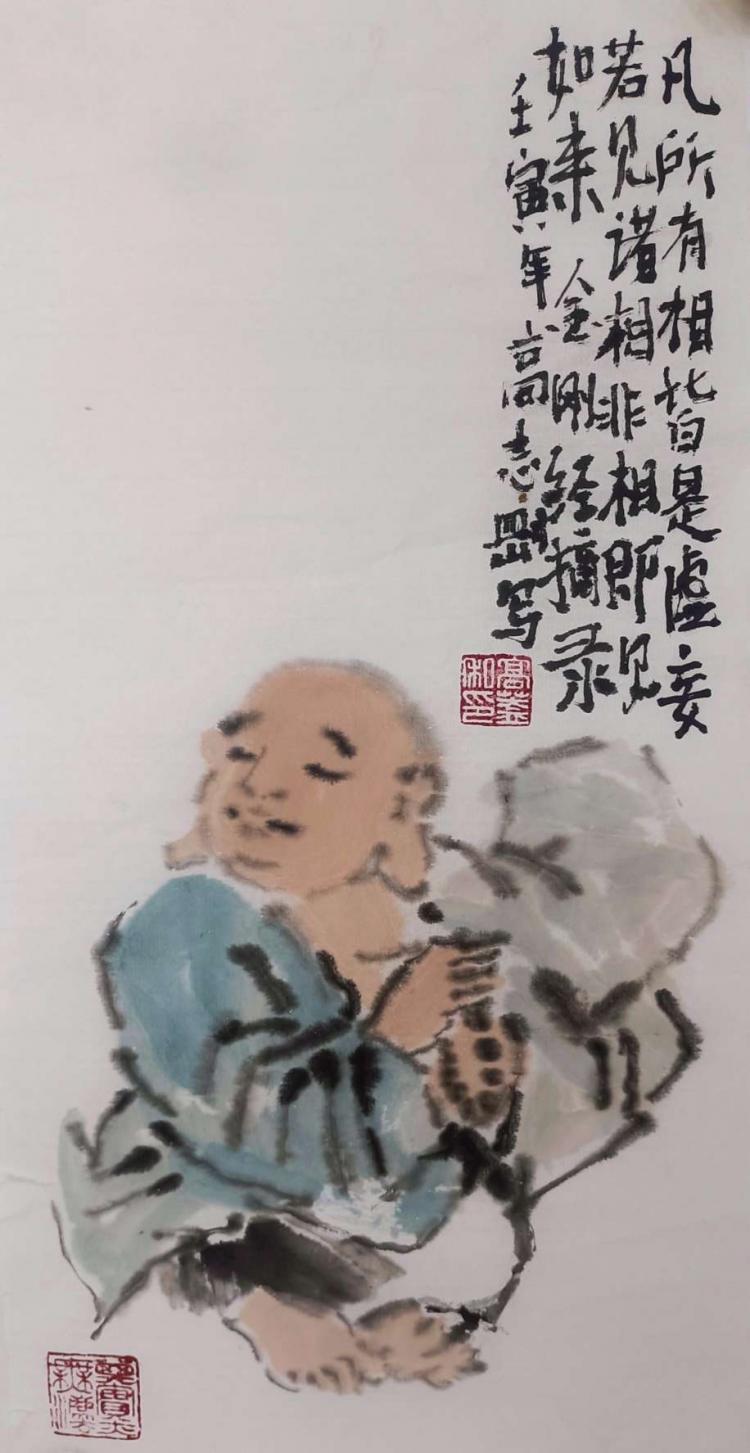 凡所有相皆是虚妄
若见诸相非相即见
如来 金刚经摘录
壬寅年高志写